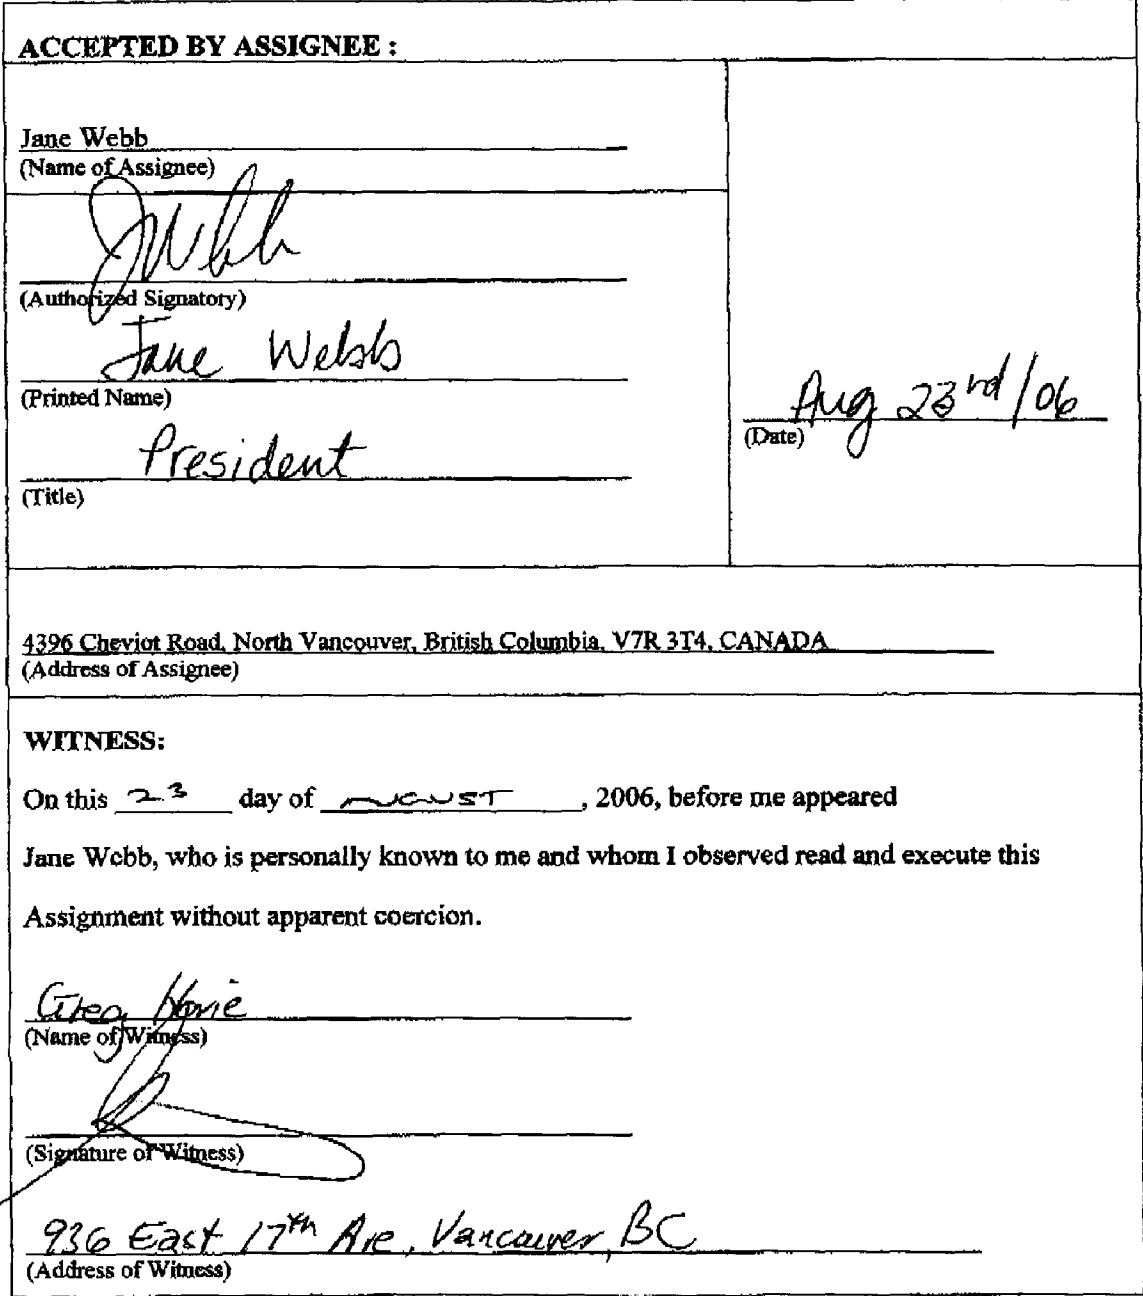 ACCEPTED BY ASSIGNEE :
Jane Webb
(Name of Assignee)
JWebb
(Authorized Signatory)
Jane Webb
(Printed Name)
President
(Title)
Aug 23rd/06
(Date)
4396 Cheviot Road, North Vancouver, British Columbia, V7R 3T4, CANADA
(Address of Assignee)
WITNESS:
On this 23 day of AUGUST, 2006, before me appeared
Jane Webb, who is personally known to me and whom I observed read and execute this
Assignment without apparent coercion.
Greg
(Name of Witness)
(Signature of Witness)
936 East 17th Ave, Vancouver, BC
(Address of Witness)